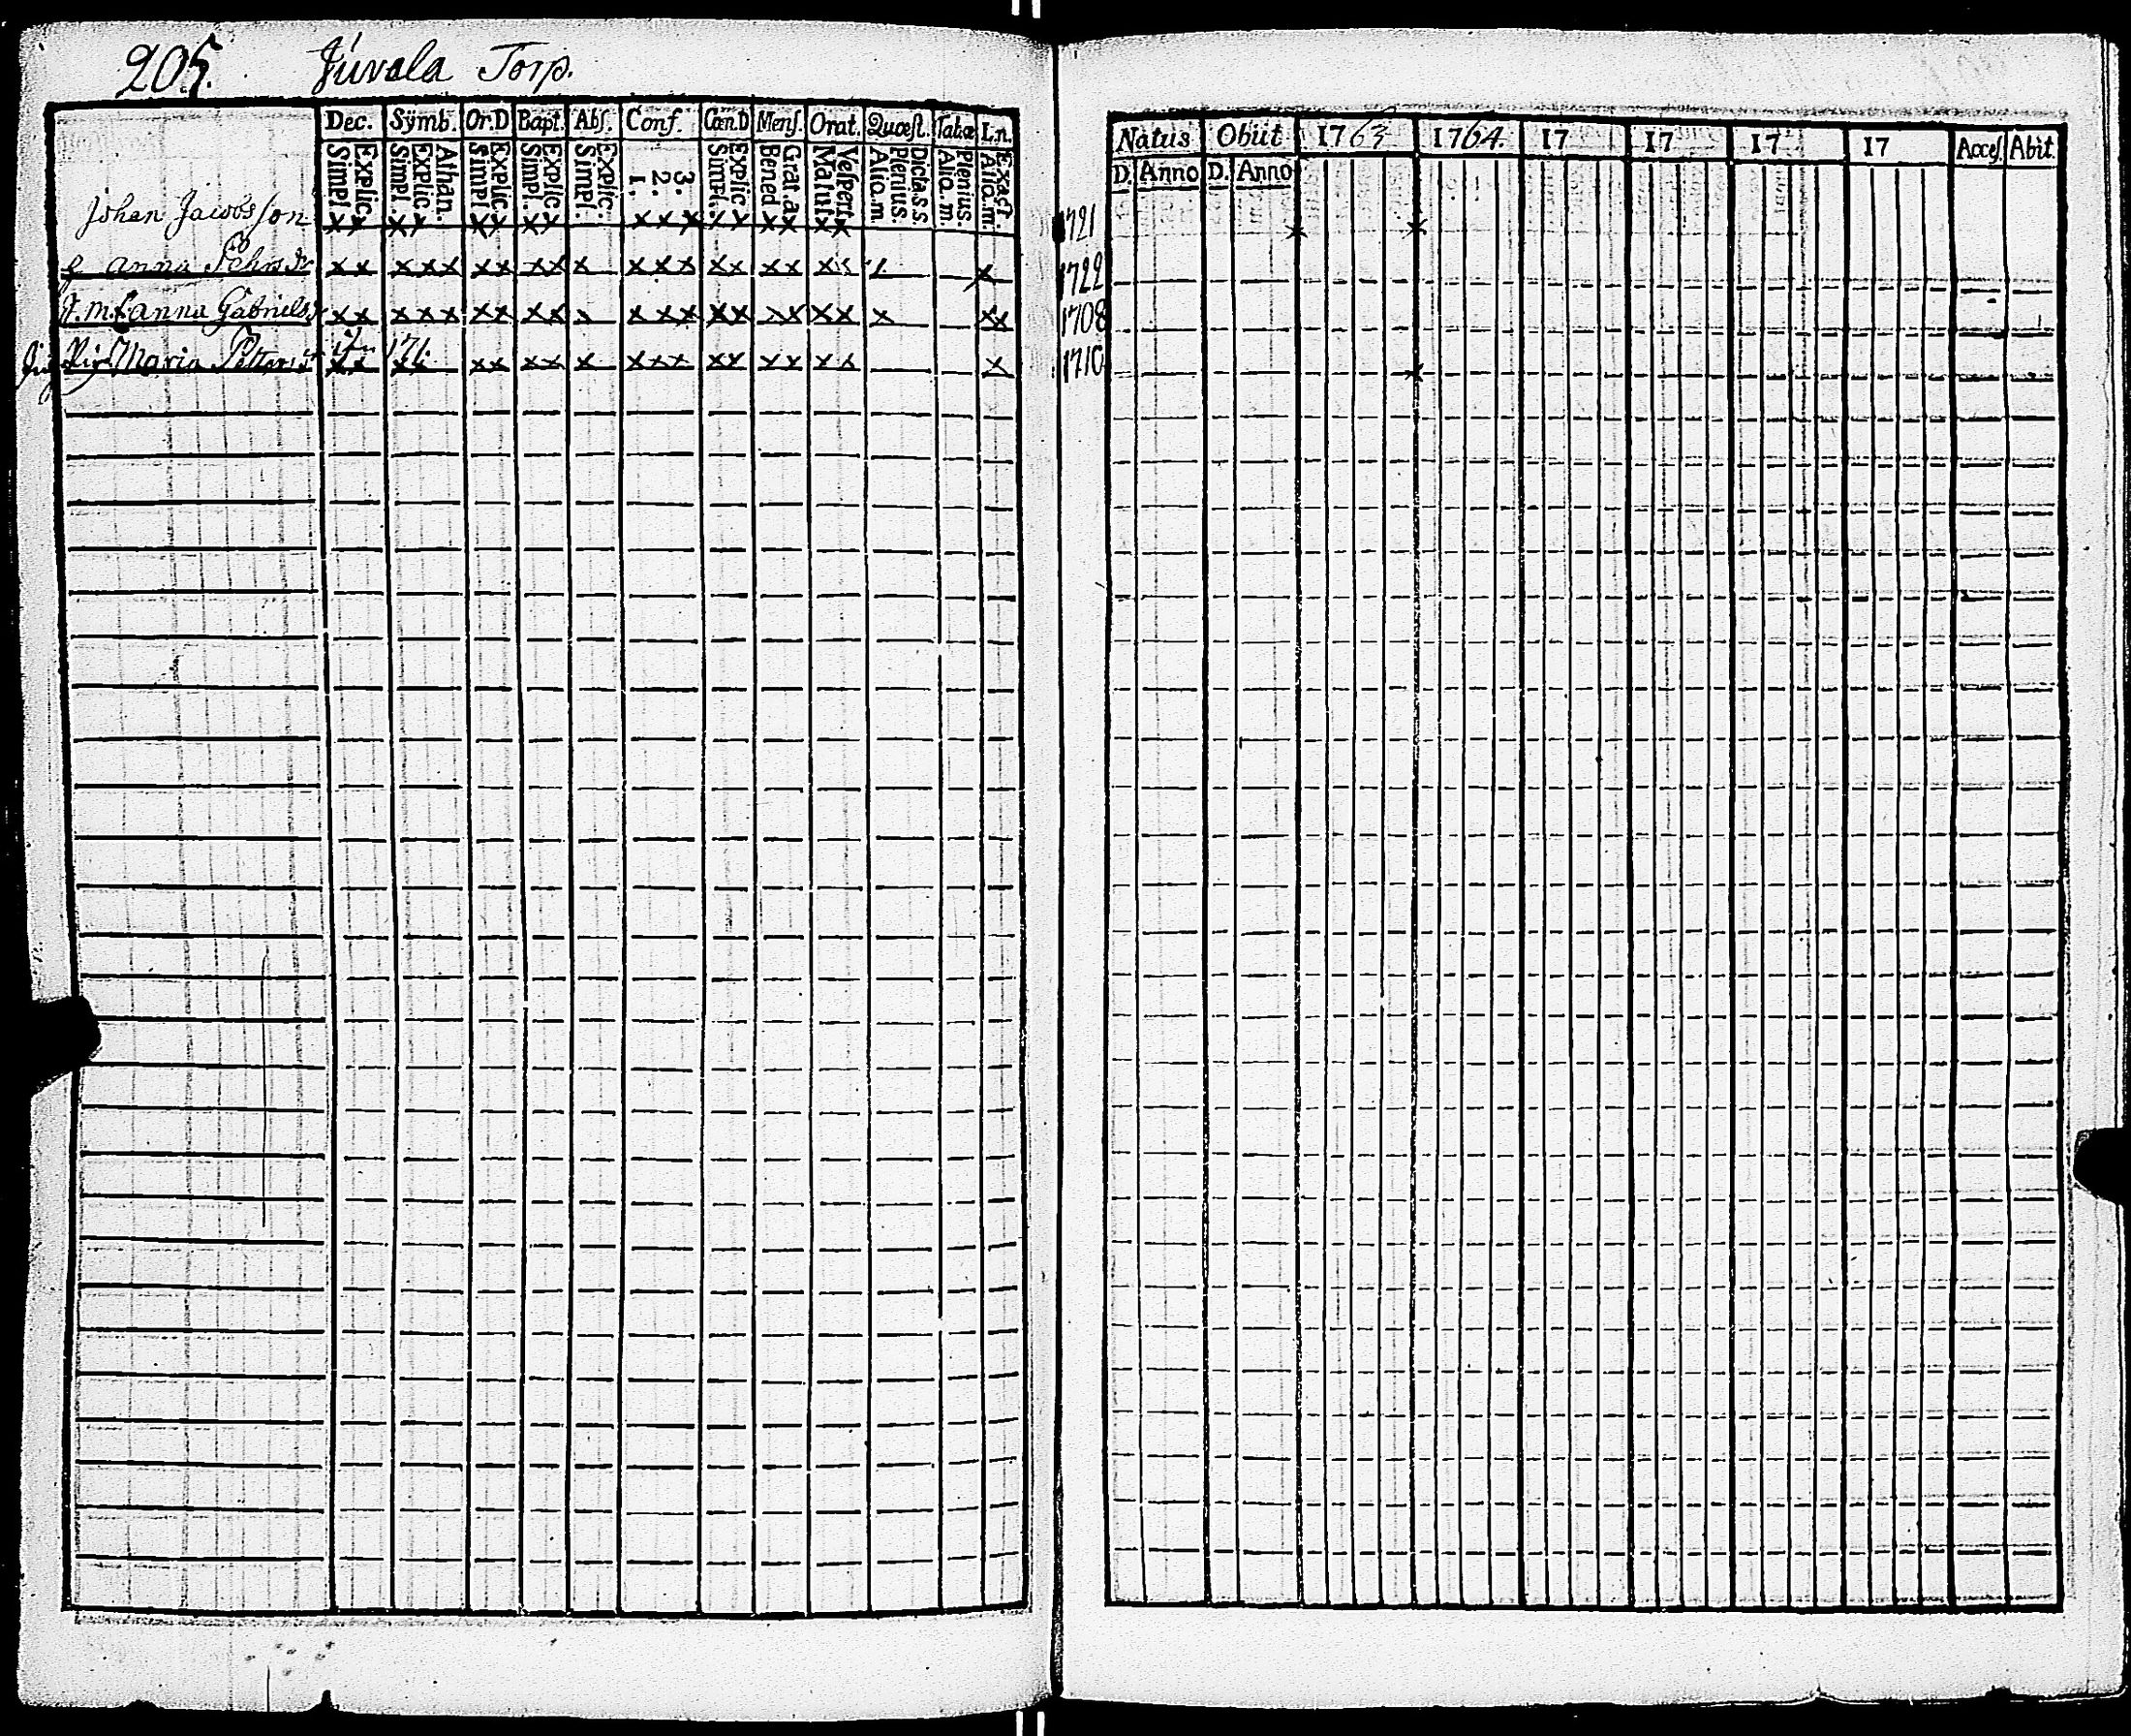 205. Juvala Torp.
Dec. Symb. Or.D Bapt. Abs. Conf. Cœn.D Mens. Orat. Quæst. Tabœ I.n.
Simpl. Explic. Simpl Explic. Athan. Simpl Explic Simpl. Explic Simpl. Explic. 1. 2. 3. Simpl. Explic Bened Grat.a Matut. Vespert. Aliq.m Plenius. Dicta.s s Aliq.m Plenius. Aliq.m. Exact
Johan Jacobsson x x x x x x x x x x x x x x x x x
anna Pehrsdr x x x x x x x x x x x x x x x x x x x
anna Gabrielsd x x x x x x x x x x x x x x x x x x x x
Maria Petters x x x x x x x x x x x x x x x x x x
Natus Obiit 1763 1764. 17 17 17 17 Acces. Abit.
D. Anno D. Anno
1721 x x
1722
1708
1710 x